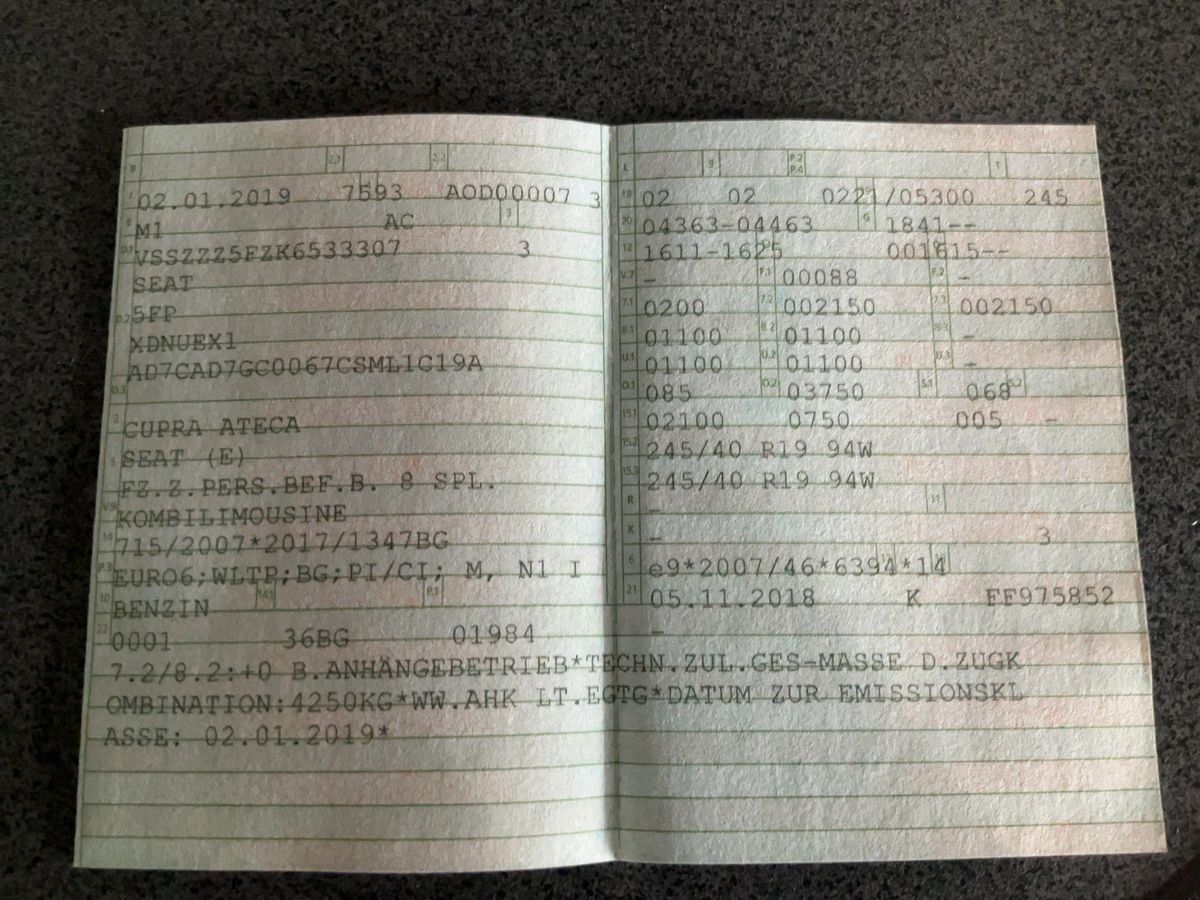 B 2.1 2.2
02.01.2019 7593 AOD00007 3
M1 AC
VSSZZZ5FZK6533307 3
SEAT
5FP
XDNUEX1
AD7CAD7GC0067CSML1C19A
D.3
2 CUPRA ATECA
5 SEAT (E)
FZ.Z.PERS.BEF.B. 8 SPL.
V.9 KOMBILIMOUSINE
14 715/2007*2017/1347BG
P.3 EURO6;WLTP;BG;PI/CI; M, N1 I
10 14.1 P.1
BENZIN
22 0001 36BG 01984
L 9 P.2 P.4 T
18 02 02 0221/05300 245
20 04363-04463 G 1841--
12 1611-1625 001615--
V.7 - F.1 00088 F.2 -
7.1 0200 7.2 002150 7.3 002150
8.1 01100 8.2 01100 8.3 -
U.1 01100 U.2 01100 U.3 -
O.1 085 O.2 03750 S.1 068 S.2
15.1 02100 0750 005 -
15.2 245/40 R19 94W
15.3 245/40 R19 94W
R - 11
K - 3
6 e9*2007/46*6394*14
21 05.11.2018 K FF975852
-
7.2/8.2:+0 B.ANHÄNGEBETRIEB*TECHN.ZUL.GES-MASSE D.ZUGK
OMBINATION:4250KG*WW.AHK LT.EGTG*DATUM ZUR EMISSIONSKL
ASSE: 02.01.2019*